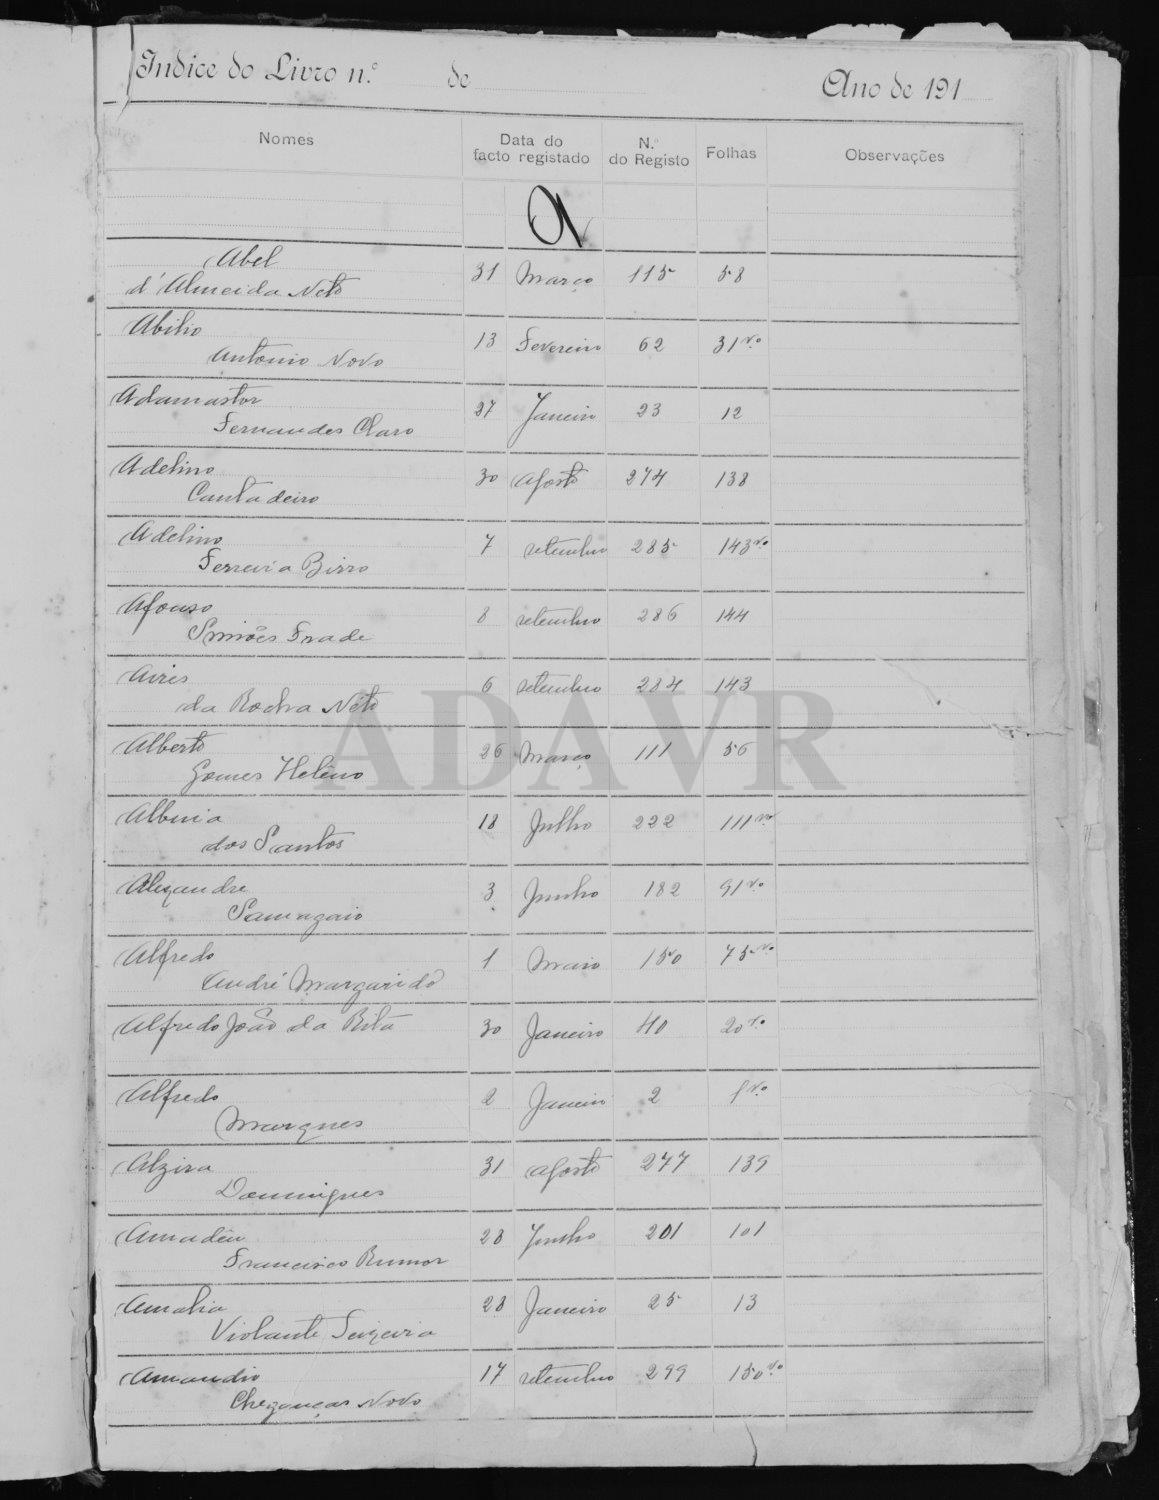 Indice do Livro n.º de Ano de 191
Nomes Data do facto registado N.º do Registo Folhas Observações
A
Abel
d'Almeida Neto 31 Março 115 58
Abilio
Antonio Novo 13 Fevereiro 62 31 vº
Adamastor
Fernandes Claro 27 Janeiro 23 12
Adelino
Cantadeiro 30 Agosto 274 138
Adelino
Ferreira Birro 7 setembro 285 143 vº
Afonso
Simões Frade 8 setembro 286 144
Aires
da Rocha Néto 6 setembro 284 143
Alberto
Gomes Heleno 26 Março 111 56
Albina
dos Santos 18 Julho 222 111 vº
Alexandre
Samagaio 3 Junho 182 91 vº
Alfredo
André Margarido 1 Maio 150 75 vº
Alfredo João da Rita 30 Janeiro 40 20 vº
Alfredo
Marques 2 Janeiro 2 1 vº
Alzira
Domingues 31 agosto 277 139
Amadeu
Francisco Rumor 28 Junho 201 101
Amalia
Violante Teixeira 28 Janeiro 25 13
Amandio
Chezanças Novo 17 setembro 299 150 vº
ADAVR